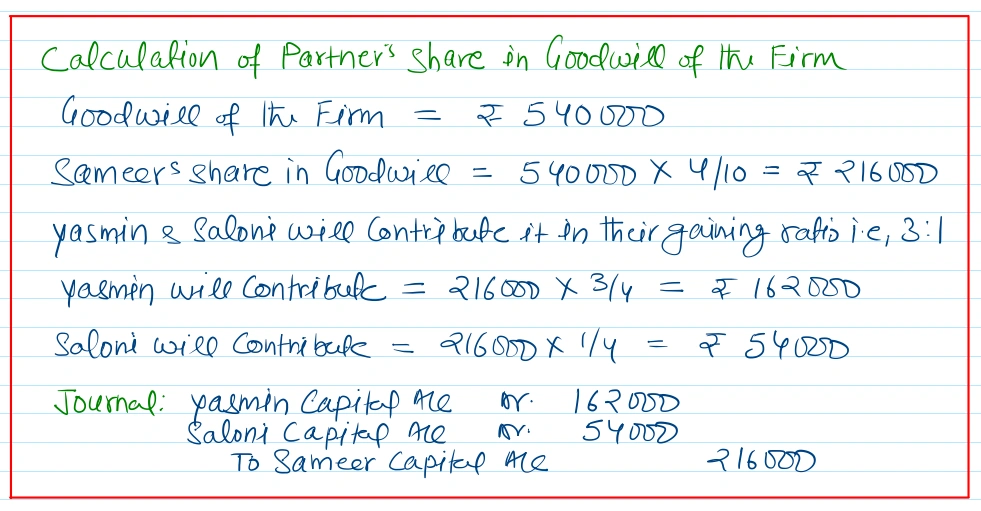 Calculation of Partner's Share in Goodwill of the Firm
Goodwill of the Firm = ₹ 540000
Sameer's share in Goodwill = 540000 × 4/10 = ₹ 216000
Yasmin & Saloni will Contribute it in their gaining ratio i.e, 3:1
Yasmin will Contribute = 216000 × 3/4 = ₹ 162000
Saloni will Contribute = 216000 × 1/4 = ₹ 54000
Journal: Yasmin Capital A/c Dr. 162000
Saloni Capital A/c Dr. 54000
To Sameer Capital A/c 216000